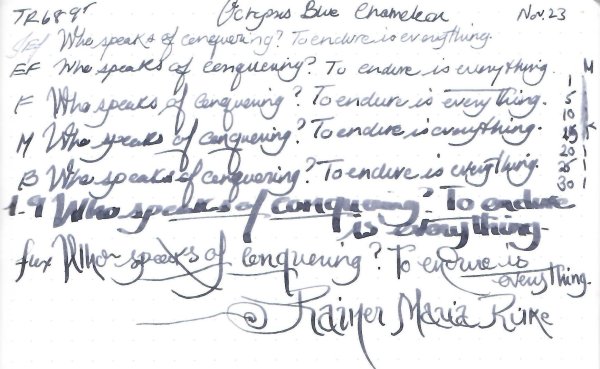 TR68gr Octopus Blue Chameleon Nov. 23
EEF Who speaks of conquering? To endure is everything.
EF Who speaks of conquering? To endure is everything.
F Who speaks of conquering? To endure is everything.
M Who speaks of conquering? To endure is everything.
B Who speaks of conquering? To endure is everything.
1.9 Who speaks of conquering? To endure
is everything.
fux Who speaks of conquering? To endure is
everything.
Rainer Maria Rilke
M
1
5
10
15
20
25
30